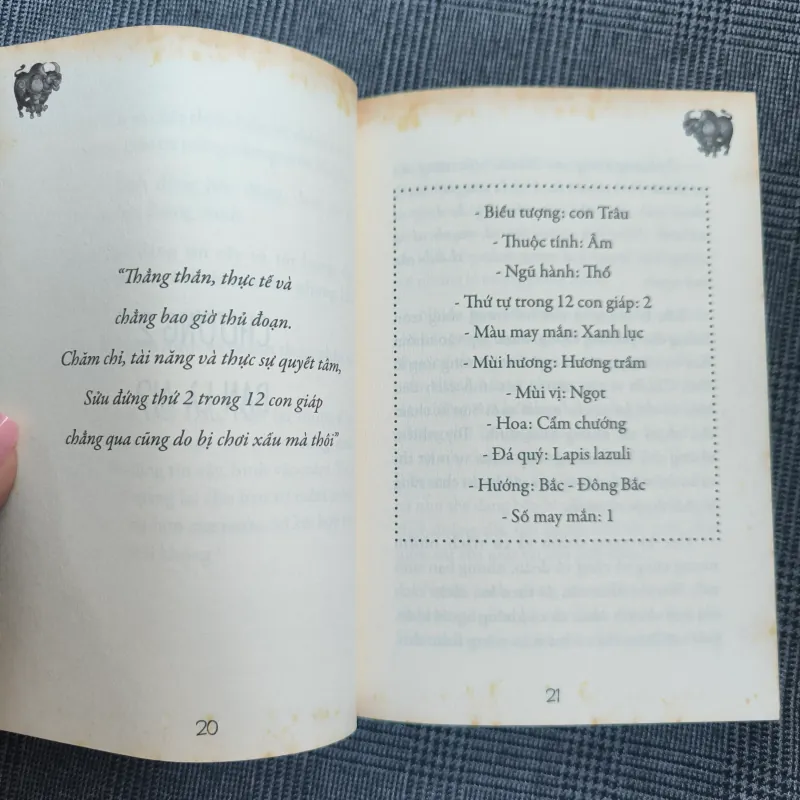 “Thẳng thắn, thực tế và
chẳng bao giờ thủ đoạn.
Chăm chỉ, tài năng và thực sự quyết tâm,
Sửu đứng thứ 2 trong 12 con giáp
chẳng qua cũng do bị chơi xấu mà thôi”
20
- Biểu tượng: con Trâu
- Thuộc tính: Âm
- Ngũ hành: Thổ
- Thứ tự trong 12 con giáp: 2
- Màu may mắn: Xanh lục
- Mùi hương: Hương trầm
- Mùi vị: Ngọt
- Hoa: Cẩm chướng
- Đá quý: Lapis lazuli
- Hướng: Bắc - Đông Bắc
- Số may mắn: 1
21